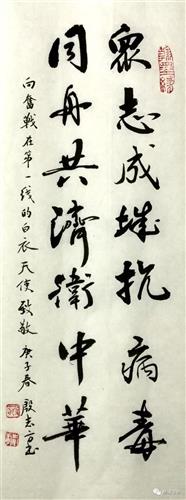 眾志成城抗病毒
同舟共濟衛中華
向奮戰在第一线的白衣天使致敬 庚子春 殷志